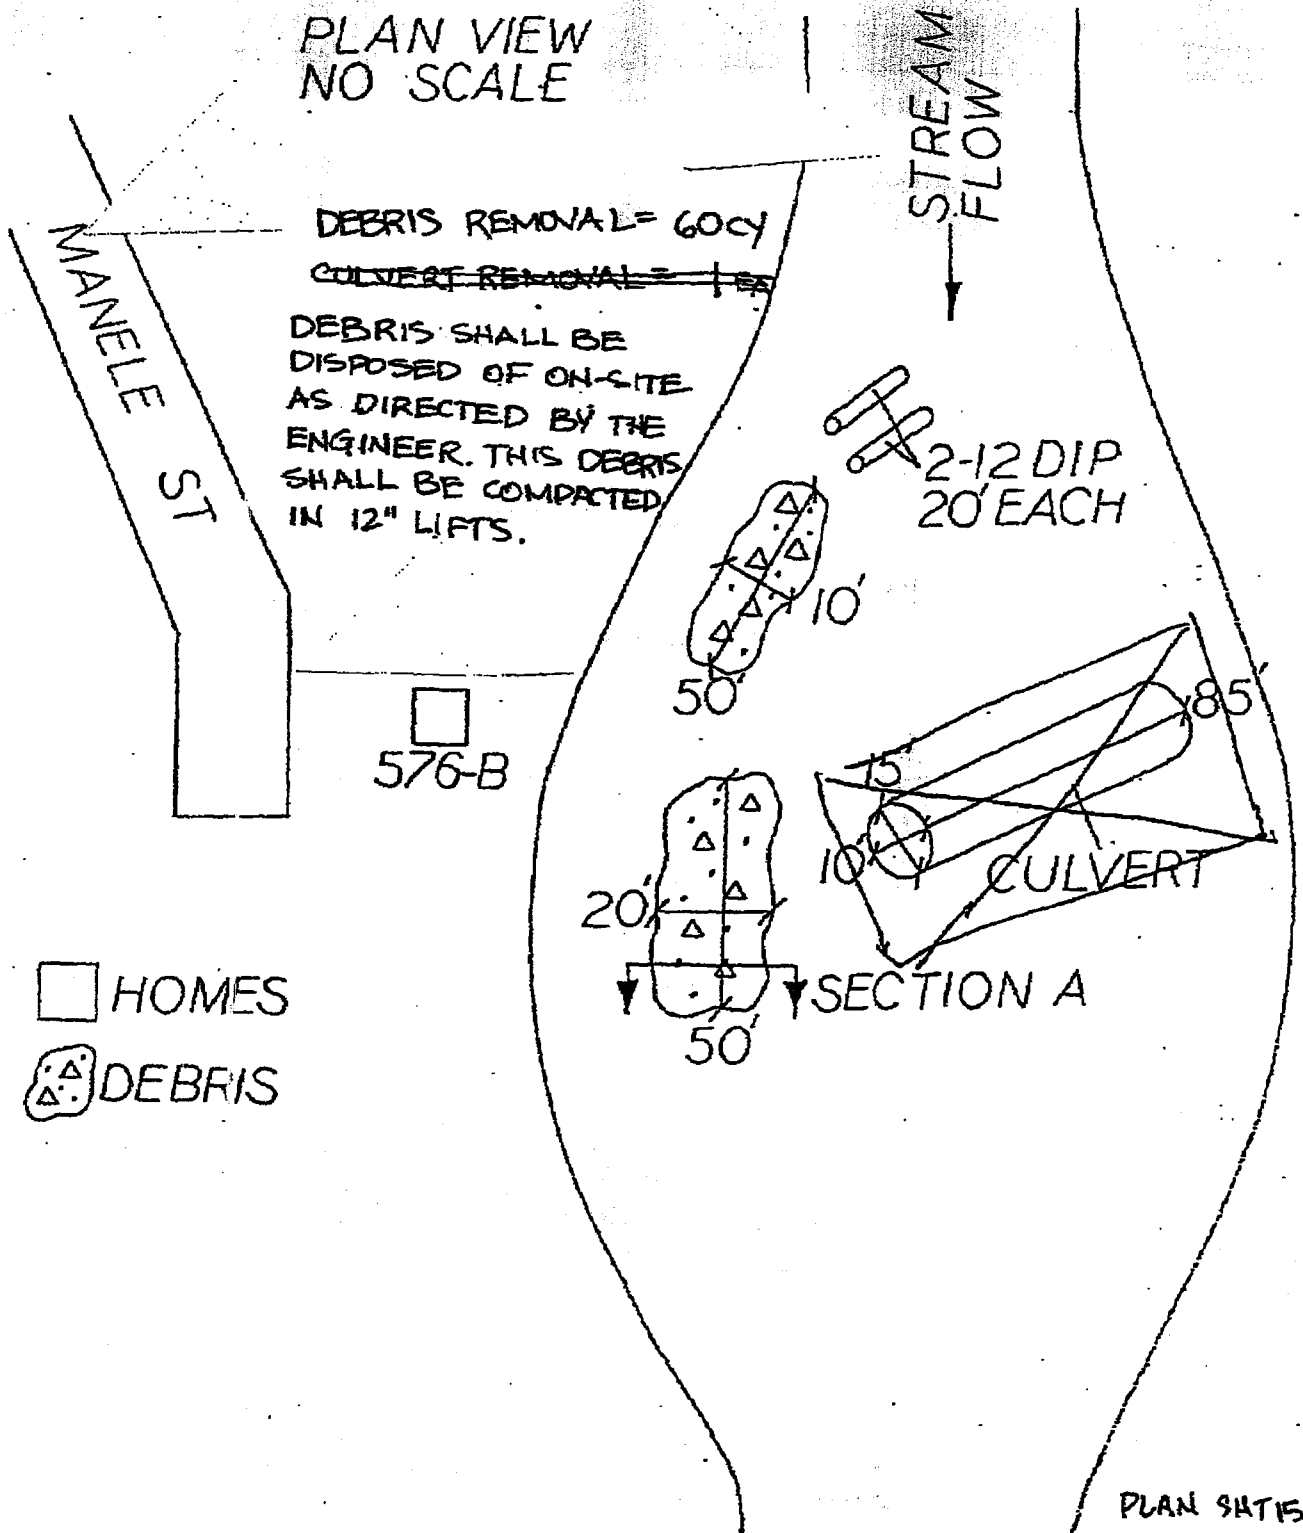 PLAN VIEW
NO SCALE
STREAM
FLOW
MANELE ST
DEBRIS REMOVAL = 60 CY
CULVERT REMOVAL = 1 EA
DEBRIS SHALL BE
DISPOSED OF ON-SITE
AS DIRECTED BY THE
ENGINEER. THIS DEBRIS
SHALL BE COMPACTED
IN 12" LIFTS.
2-12 DIP
20' EACH
10'
50'
85'
576-B
15'
10'
CULVERT
20'
SECTION A
50'
HOMES
DEBRIS
PLAN SHT 15